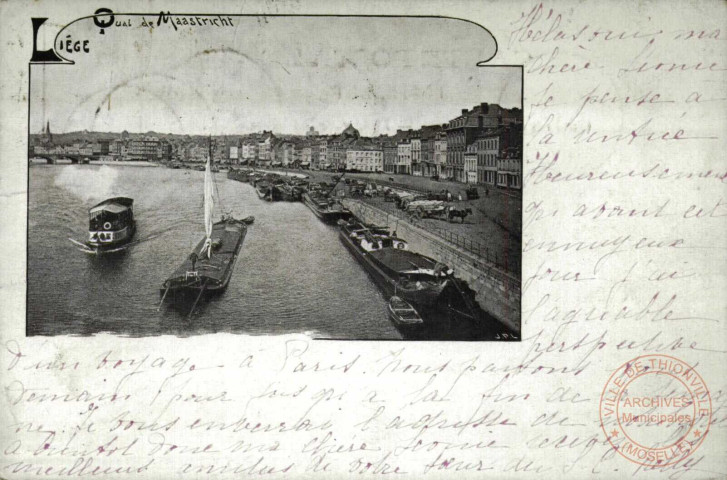 LIÉGE Quai de Maastricht
Hélas oui, ma
chère
je pense à
la rentrée
Heureusement
qu'avant cet
ennuyeux
jour j'ai
l'agréable
perspective
d'un voyage à Paris Nous partons
demain pour jusqu'à la fin de
Je vous enverrai l'adresse de
a bientôt donc ma chère
meilleures amitiés de votre sœur
J.P.L.
VILLE DE THIONVILLE
ARCHIVES
Municipales
(MOSELLE)